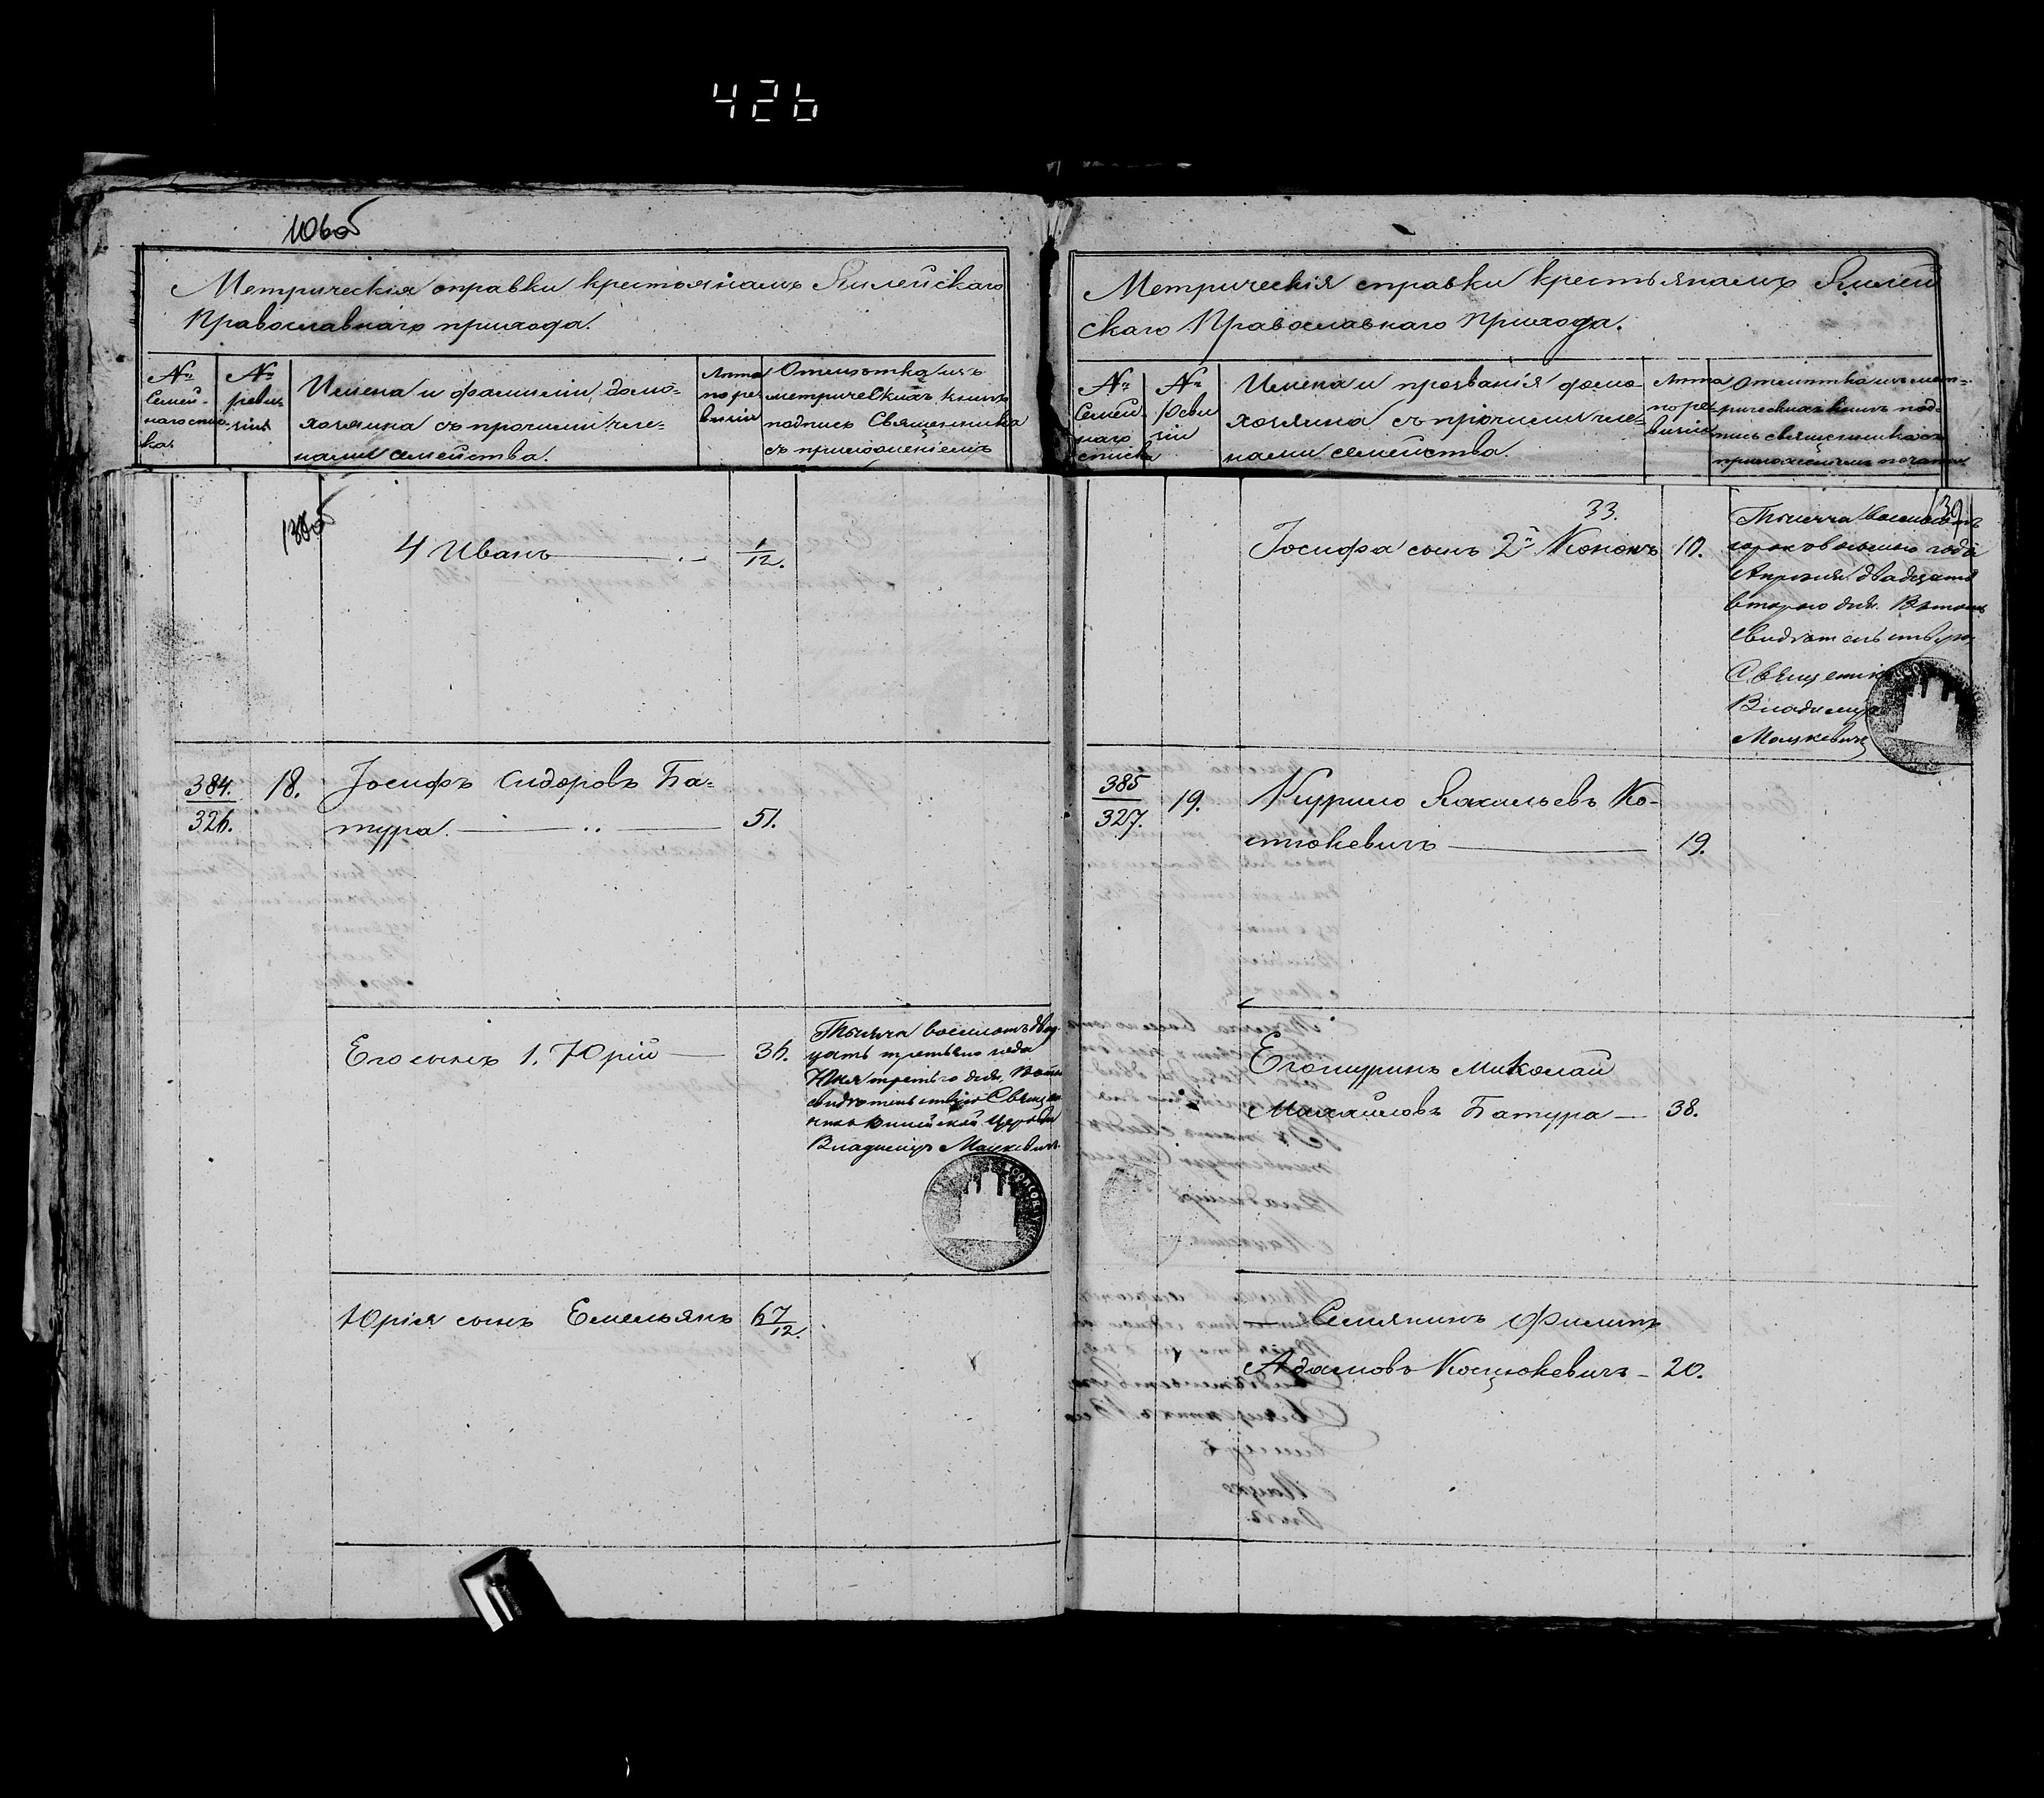 426
106об
Метрическія справки крестьянамъ Яилейскаго
Православнаго прихода.
№
Семей-
наго спис-
ка.
№
реви-
зіи
Имена и фамиліи домо-
хозяина съ прочими чле-
нами семейства.
Лѣта
по ре
визіи
Отмѣтка изъ
метрическихъ книгъ
подпись Священника
съ приложеніемъ
138об
4 Иванъ 1/12.
384.
326.
18.
Іосифъ Сидоровъ Ба-
тура. 51.
Его сынъ 1. Юрій 36.
Тысяча восемьсотъ двад
цать третьяго года
Юня третьго дня, въ томъ
свидѣтельствую Священ
никъ Церкви
Владиміръ Мацкевичъ
Юрія сынъ Емельянъ 6 7/12.
Метрическія справки крестьянамъ Яилей
скаго Православнаго Прихода.
№
Семей
наго
списка
№
Реви
зіи
Имена и прозванія домо
хозяина съ прочими чле-
нами семейства.
Лѣта
по ре
визіи
Отмѣтка изъ мет-
рическихъ книгъ под-
пись священника съ
приложеніемъ печати
139
33.
Іосифа сынъ 2й Кононъ 10.
Тысяча восемьсотъ
сорокъ осьмого года
Апреля двадцать
второго дня. Въ томъ
свидѣтельствую
Священникъ
Владиміръ
Мацкевичъ
385
327.
19.
Курило Якильевъ Ко-
стюкевичъ 19.
Его шуринъ Миколай
Михайловъ Батура 38.
Семянинъ Филипъ
Адамовъ Коцюкевичъ 20.